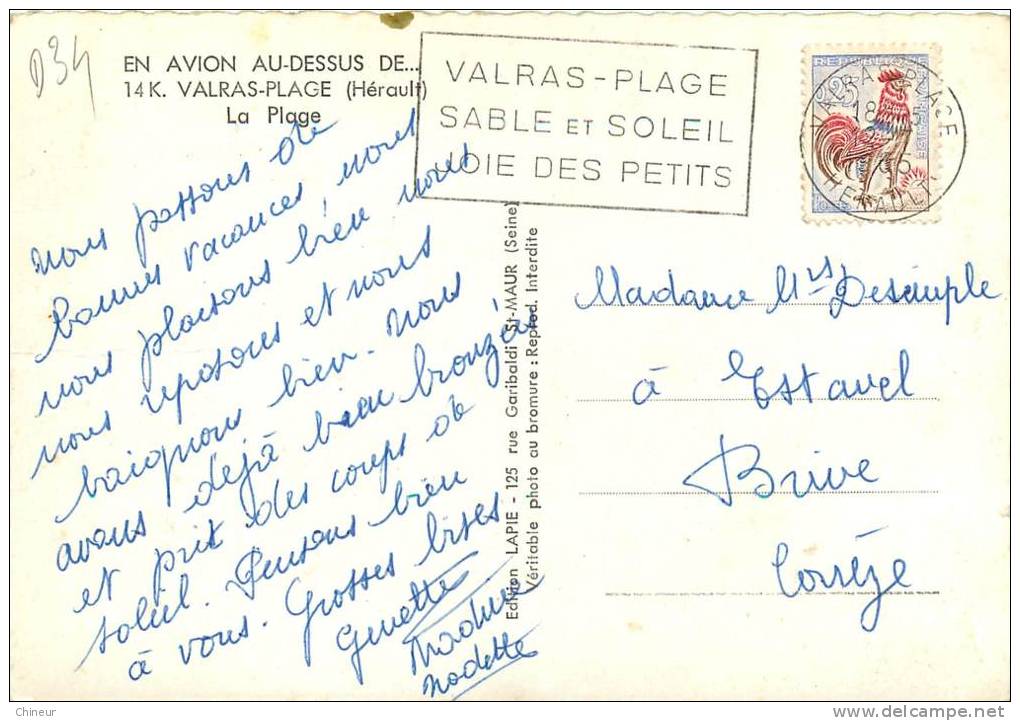 D34
EN AVION AU-DESSUS DE...
14 K. VALRAS-PLAGE (Hérault)
La Plage
VALRAS-PLAGE
SABLE ET SOLEIL
JOIE DES PETITS
VALRAS-PLAGE
18
HERAULT
REPUBLIQUE FRANÇAISE
0,25
Nous passons de
bonnes vacances nous
nous plaisons bien nous
nous reposons et nous
baignons bien. Nous
avons dejà beau bronzée
et pris des coups de
soleil. Pensons bien
à vous. Grosses bises
Ginette
Nadine
Nadette
Edition LAPIE - 125 rue Garibaldi St-MAUR (Seine)
Véritable photo au bromure : Reprod. Interdite
Madame
à Estavel
Brive
Corrèze
Chineur
delcampe.net